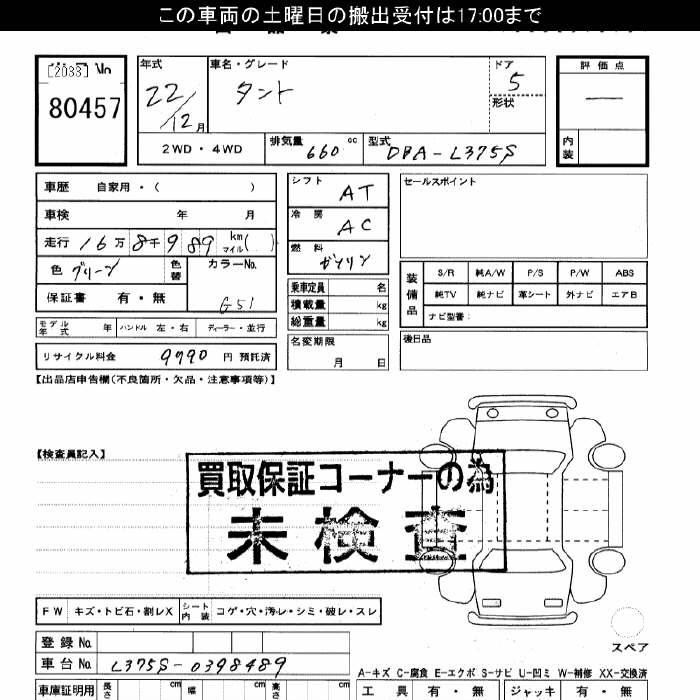 この車両の土曜日の搬出受付は17:00まで
[2033] No
80457
年式 22/12月
車名・グレード タント
ドア 5
形状
評価点 —
内装
2WD・4WD
排気量 660 cc
型式 DBA-L375S
車歴 自家用・( )
車検 年 月
走行 16万8千989 km マイル( )
色 グリーン 色替
カラーNo. G51
保証書 有・無
シフト AT
冷房 AC
燃料 ガソリン
乗車定員 名
積載量 kg
総重量 kg
セールスポイント
装備品
S/R 純A/W P/S P/W ABS
純TV 純ナビ 革シート 外ナビ エアB
ナビ型番:
モデル年式 年 ハンドル 左・右 ディーラー・並行
リサイクル料金 9790 円 預託済
名変期限 月 日
後日品
【出品店申告欄(不良箇所・欠品・注意事項等)】
【検査員記入】
買取保証コーナーの為
未検査
FW キズ・トビ石・割レX シート内装 コゲ・穴・汚レ・シミ・破レ・スレ
スペア
登録No.
車台No. L375S-0398489
A-キズ C-腐食 E-エクボ S-サビ U-凹ミ W-補修 XX-交換済
車庫証明用 長さ cm 幅 cm 高さ cm
工具 有・無 ジャッキ 有・無